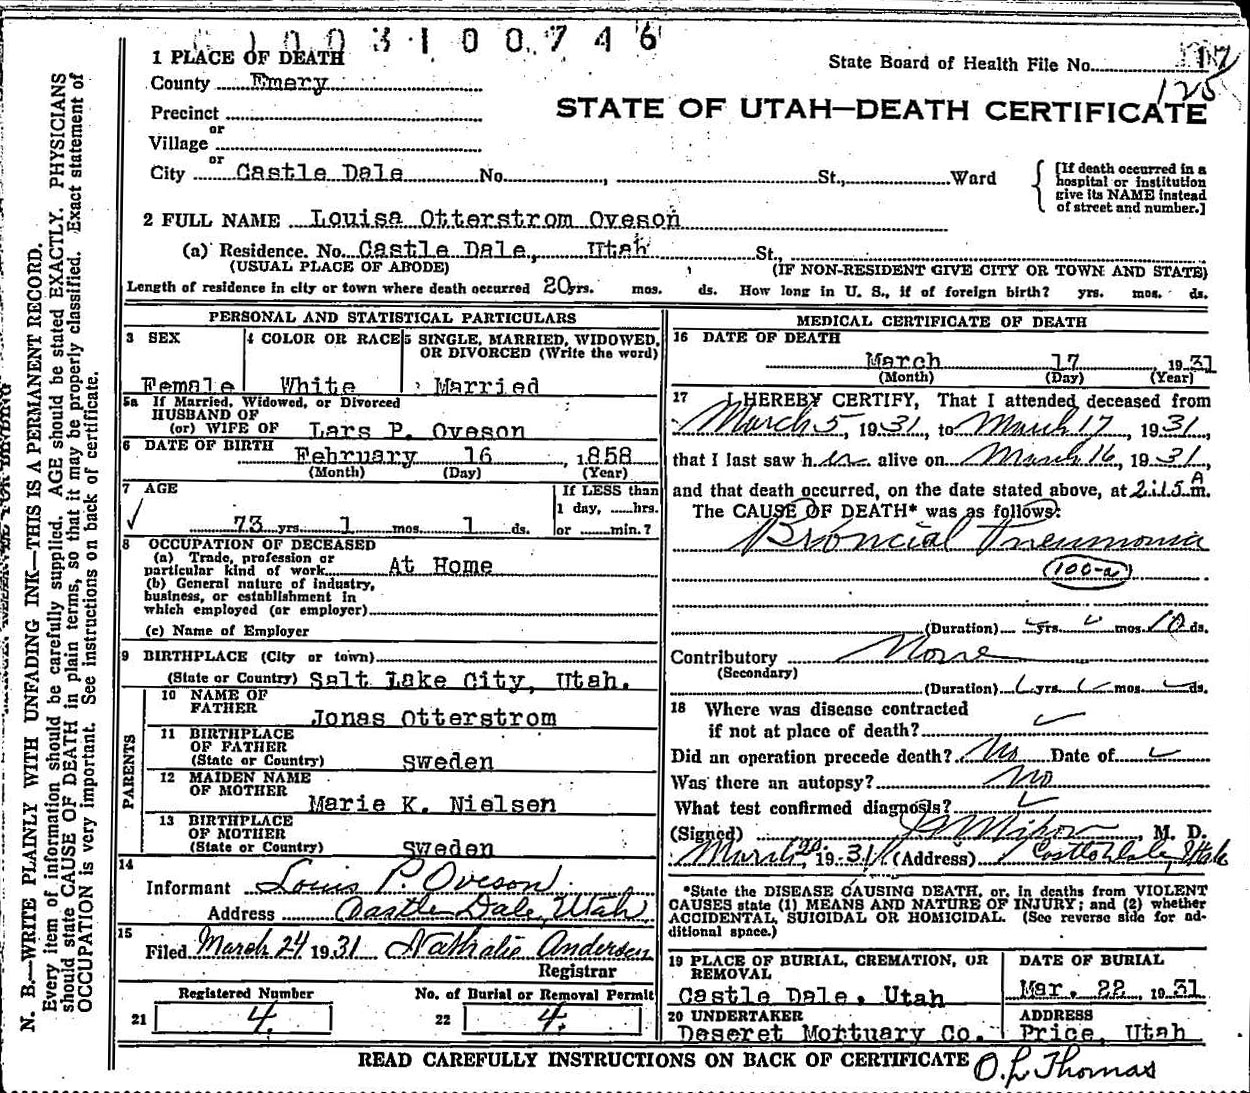 1003100746
1 PLACE OF DEATH
County Emery
State Board of Health File No. 17
125
STATE OF UTAH—DEATH CERTIFICATE
Precinct
or
Village
or
City Castle Dale No. , St., Ward
[If death occurred in a
hospital or institution
give its NAME instead
of street and number.]
2 FULL NAME Louisa Otterstrom Oveson
(a) Residence. No. Castle Dale, Utah St.,
(USUAL PLACE OF ABODE) (IF NON-RESIDENT GIVE CITY OR TOWN AND STATE)
Length of residence in city or town where death occurred 20 yrs. mos. ds. How long in U. S., if of foreign birth? yrs. mos. ds.
PERSONAL AND STATISTICAL PARTICULARS
3 SEX
Female
4 COLOR OR RACE
White
5 SINGLE, MARRIED, WIDOWED,
OR DIVORCED (Write the word)
Married
5a If Married, Widowed, or Divorced
HUSBAND OF
(or) WIFE OF Lars P. Oveson
6 DATE OF BIRTH
February 16, 1858
(Month) (Day) (Year)
7 AGE
73 yrs. 1 mos. 1 ds.
If LESS than
1 day, hrs.
or min.?
8 OCCUPATION OF DECEASED
(a) Trade, profession or
particular kind of work At Home
(b) General nature of industry,
business, or establishment in
which employed (or employer)
(c) Name of Employer
9 BIRTHPLACE (City or town)
(State or Country) Salt Lake City, Utah.
PARENTS
10 NAME OF
FATHER Jonas Otterstrom
11 BIRTHPLACE
OF FATHER
(State or Country) Sweden
12 MAIDEN NAME
OF MOTHER Marie K. Nielsen
13 BIRTHPLACE
OF MOTHER
(State or Country) Sweden
14
Informant Louis P. Oveson
Address Castle Dale, Utah
15
Filed March 24 1931 Nathalie Andersen
Registrar
Registered Number
21 4.
No. of Burial or Removal Permit
22 4.
MEDICAL CERTIFICATE OF DEATH
16 DATE OF DEATH
March 17 1931
(Month) (Day) (Year)
17 I HEREBY CERTIFY, That I attended deceased from
March 5, 1931, to March 17, 1931,
that I last saw her alive on March 16, 1931,
and that death occurred, on the date stated above, at 2:15 A m.
The CAUSE OF DEATH* was as follows:
Broncial Pneumonia
100-a
(Duration) yrs. mos. 10 ds.
Contributory None
(Secondary)
(Duration) yrs. mos. ds.
18 Where was disease contracted
if not at place of death?
Did an operation precede death? No Date of
Was there an autopsy? No
What test confirmed diagnosis?
(Signed) Nixon, M. D.
March 20, 1931 (Address) Castle Dale, Utah
*State the DISEASE CAUSING DEATH, or, in deaths from VIOLENT
CAUSES state (1) MEANS AND NATURE OF INJURY; and (2) whether
ACCIDENTAL, SUICIDAL OR HOMICIDAL. (See reverse side for ad-
ditional space.)
19 PLACE OF BURIAL, CREMATION, OR
REMOVAL
Castle Dale, Utah
DATE OF BURIAL
Mar. 22, 1931
20 UNDERTAKER
Deseret Mortuary Co.
ADDRESS
Price, Utah
READ CAREFULLY INSTRUCTIONS ON BACK OF CERTIFICATE
O. L. Thomas
N. B.—WRITE PLAINLY WITH UNFADING INK—THIS IS A PERMANENT RECORD.
Every item of information should be carefully supplied. AGE should be stated EXACTLY. PHYSICIANS
should state CAUSE OF DEATH in plain terms, so that it may be properly classified. Exact statement of
OCCUPATION is very important. See instructions on back of certificate.